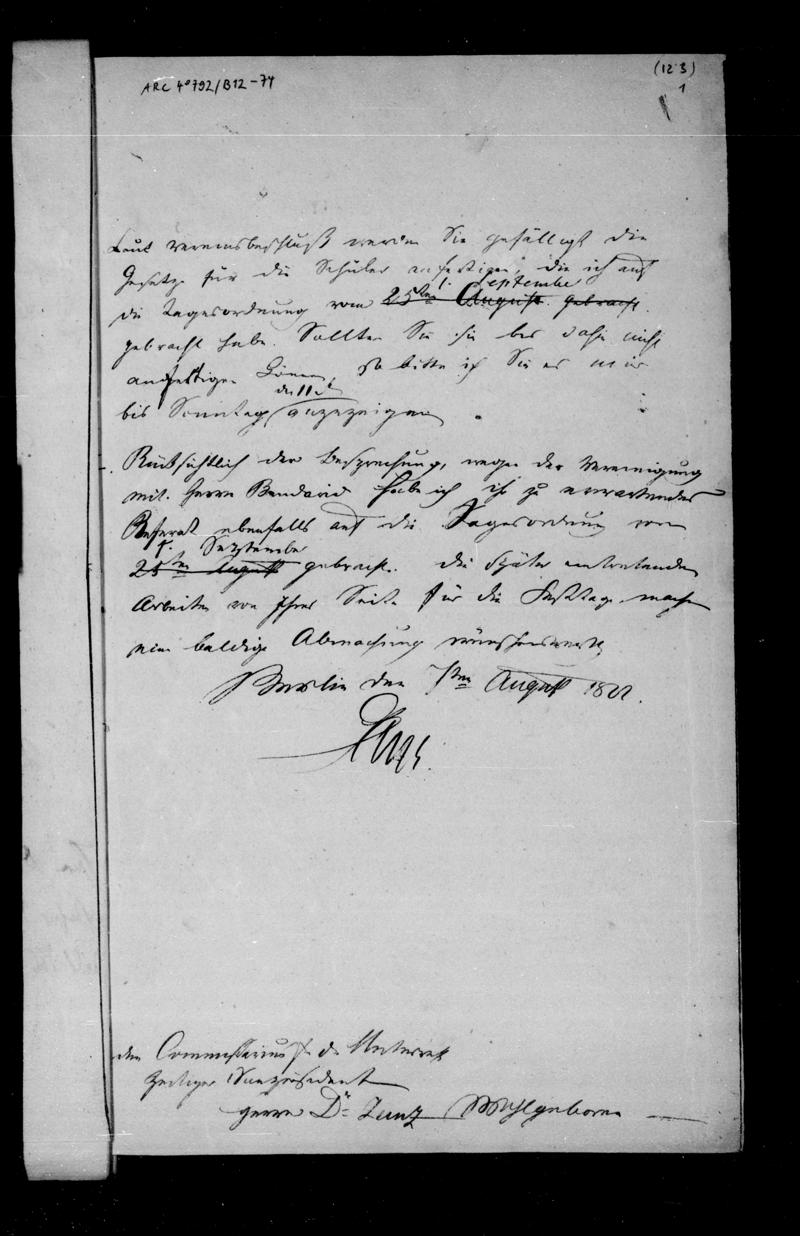 ARC 4° 792/B12-74
(123)
1
Laut Vereinsbeschluß werden Sie gefälligst die
Gesetze für die Schüler anfertigen, die ich auf
1. September
die Tagesordnung vom 25ten August gebracht.
gebracht habe. Sollten Sie sie bis dahin nicht
anfertigen können, so bitte ich Sie es mir
den 11ten
bis Sonntag anzuzeigen.
Rücksichtlich der Besprechung, wegen der Vereinigung
mit Herrn Bendavid habe ich Ihr zu erwartendes
Referat ebenfalls auf die Tagesordnung vom
1. September
25ten August gebracht. Die später eintretenden
Arbeiten von Ihrer Seite für die Festtage machen
eine baldige Abmachung wünschenswerth.
Berlin den 7ten August 1822.
den Commissarius f. d. Unterricht
zeitiger Vicepräsident
Herrn Dr. Zunz Wohlgeboren